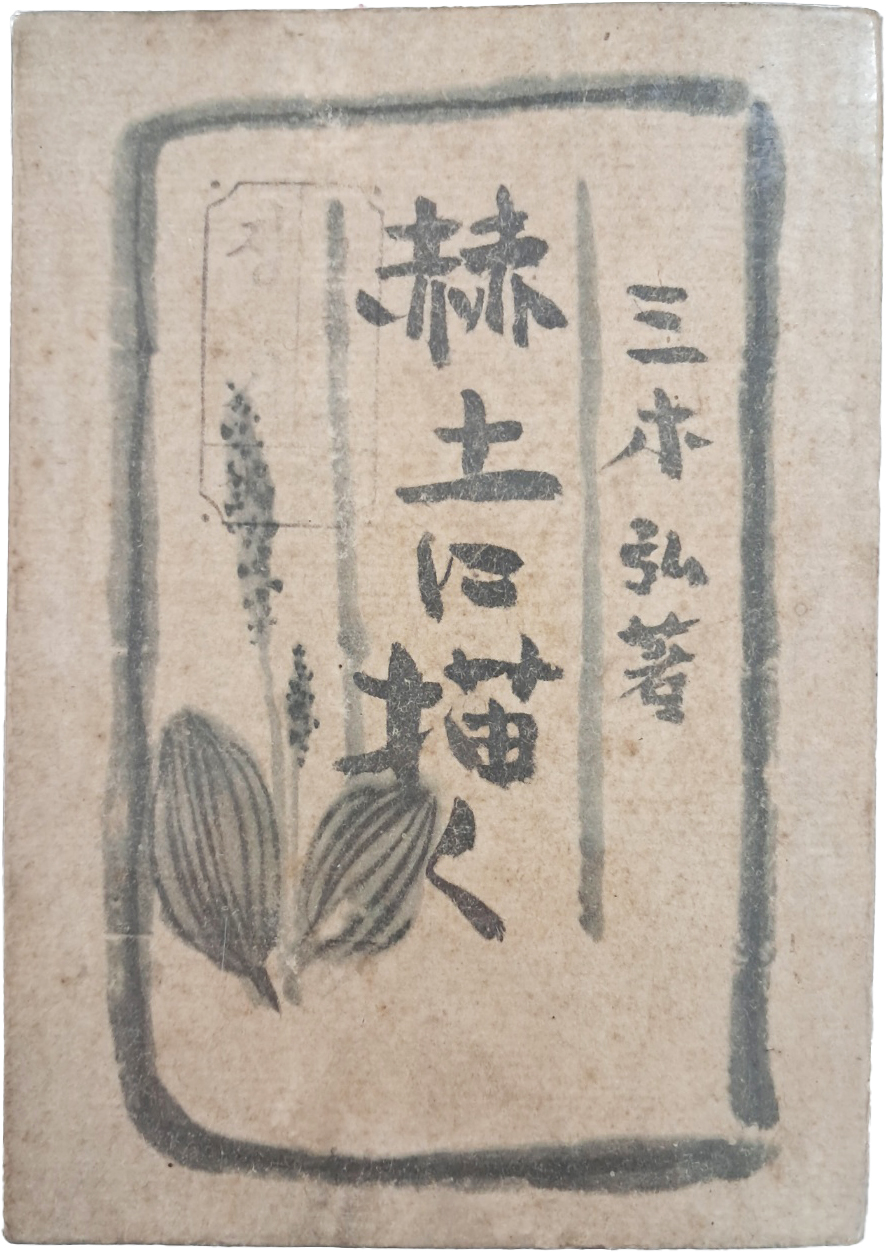 三木弘著
赫土に描く